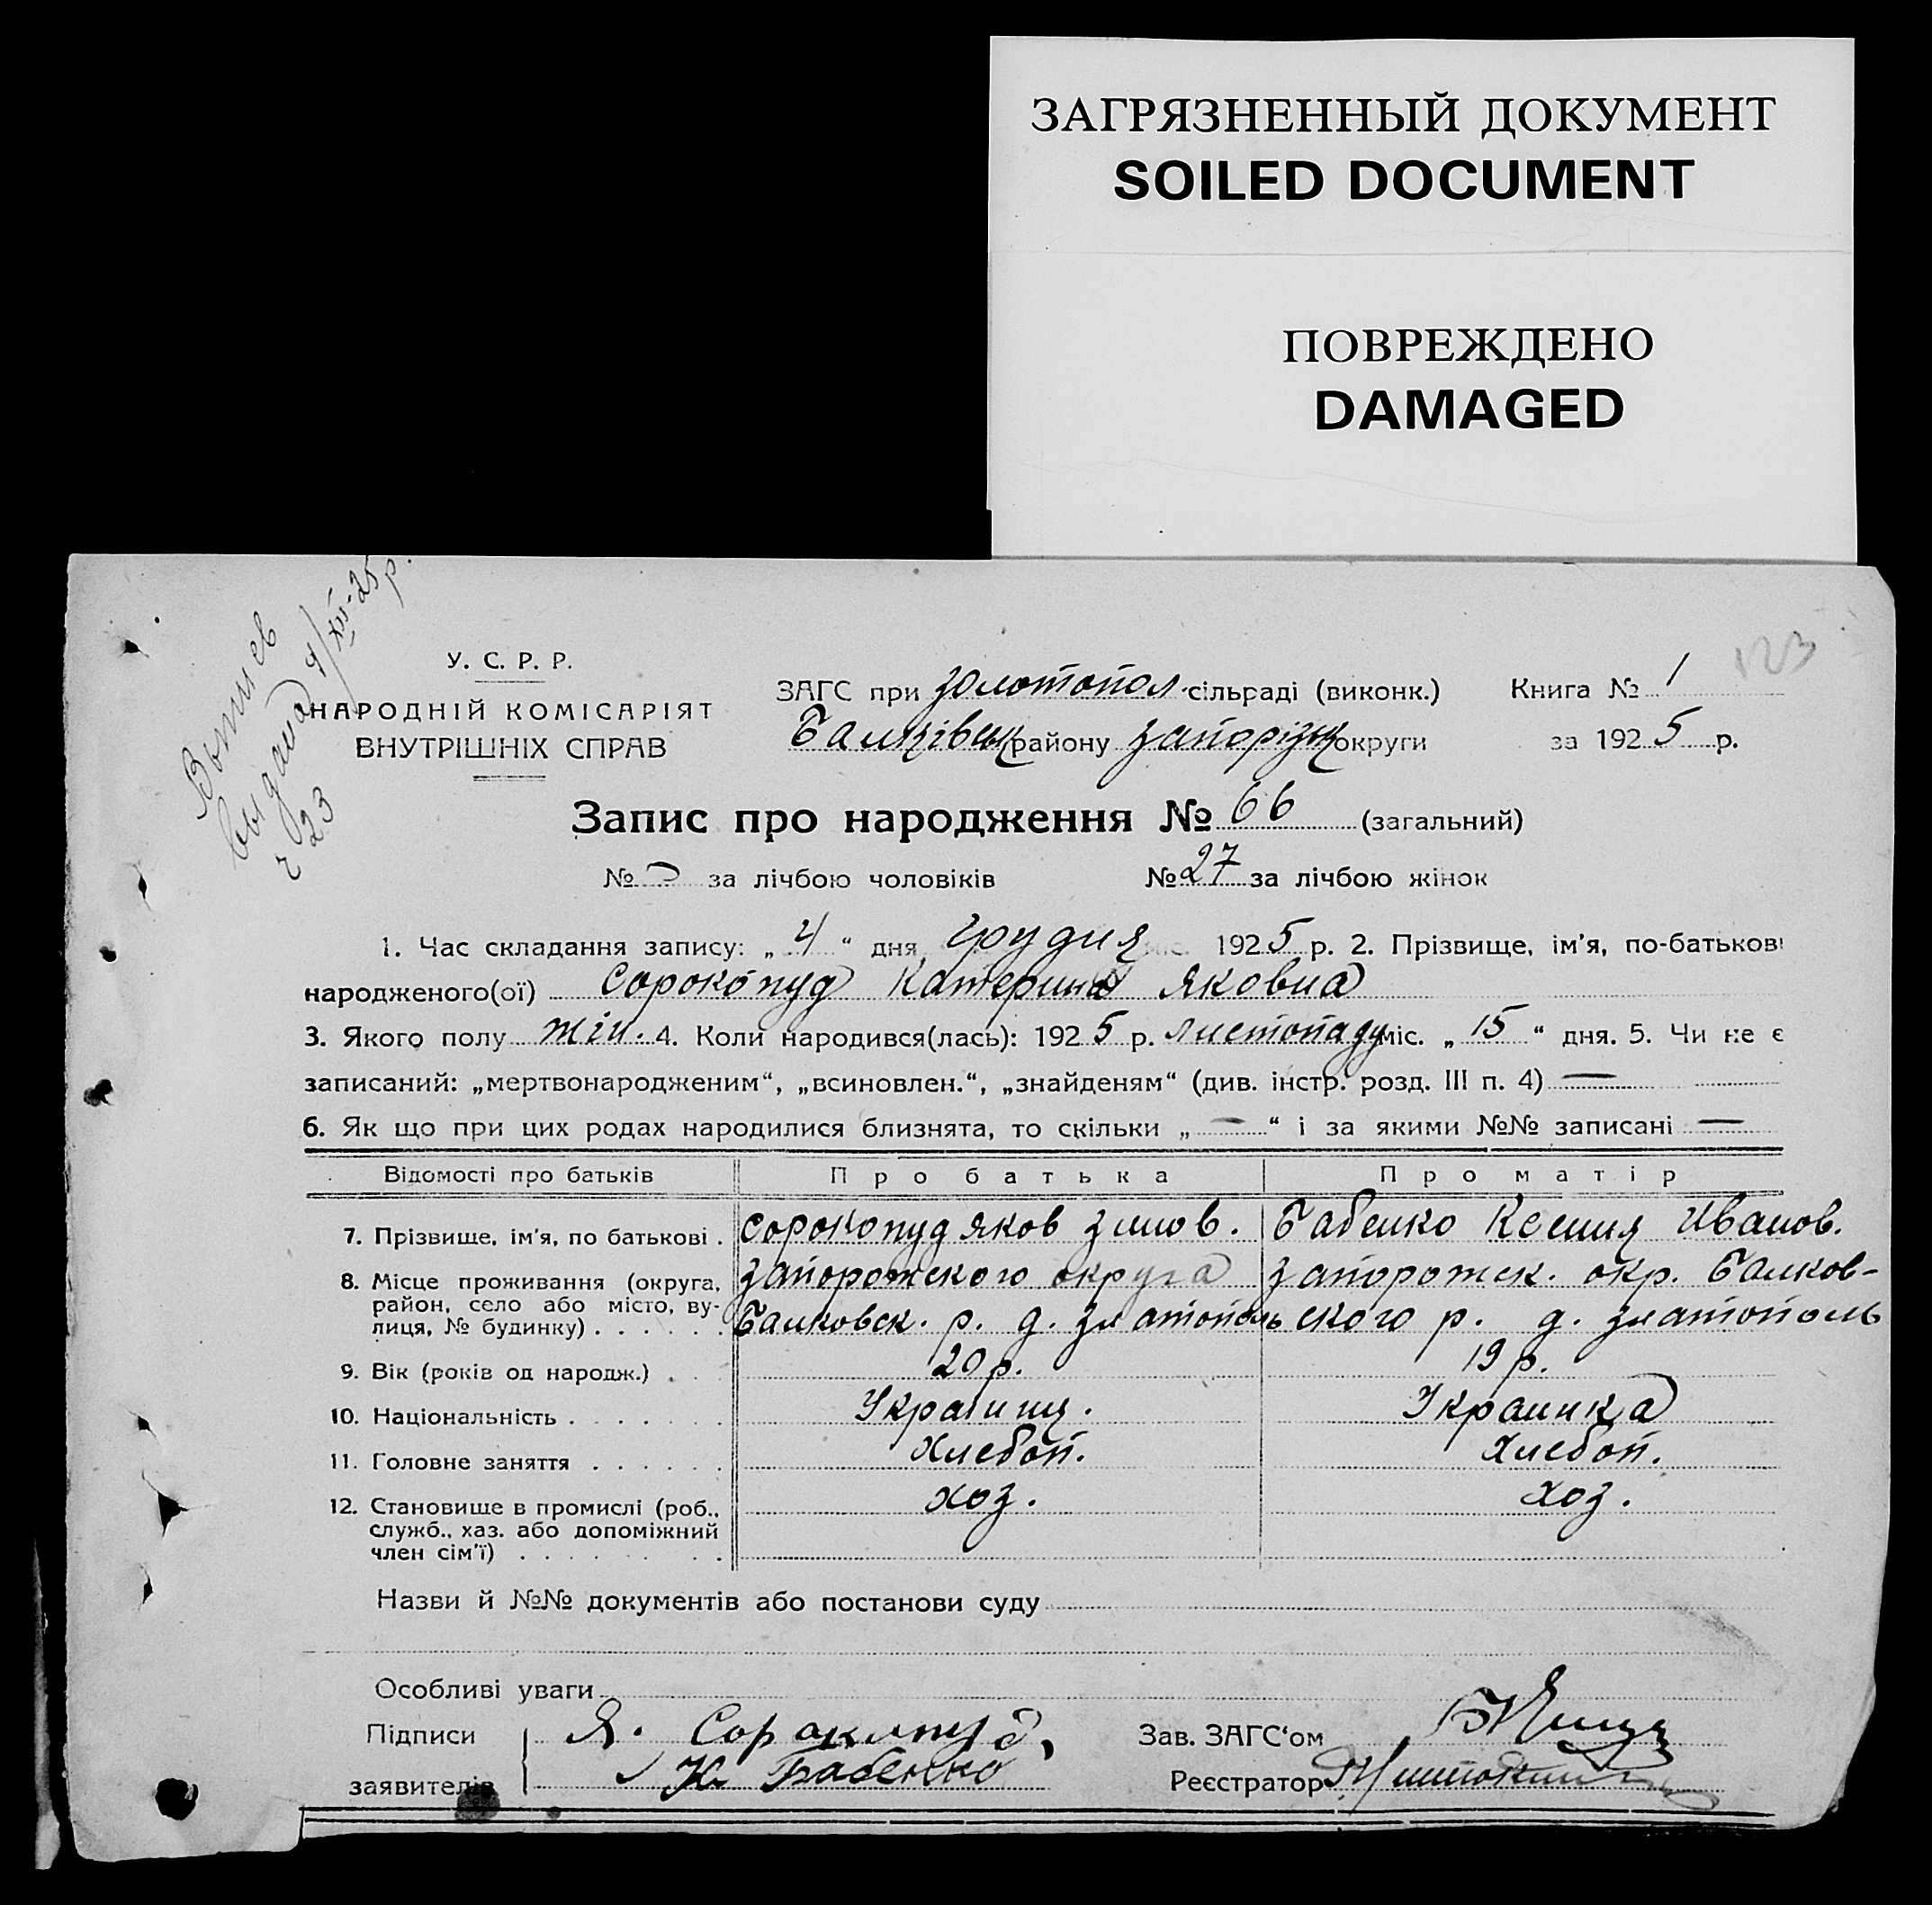 ЗАГРЯЗНЕННЫЙ ДОКУМЕНТ
SOILED DOCUMENT
ПОВРЕЖДЕНО
DAMAGED
выдано 4/XII-25 р.
23
123
У. С. Р. Р.
НАРОДНІЙ КОМІСАРІЯТ
ВНУТРІШНІХ СПРАВ
ЗАГС при золотопол. сільраді (виконк.) Книга № 1
району запорізьк округи за 1925 р.
Запис про народження № 66 (загальний)
№ за лічбою чоловіків № 27 за лічбою жінок
1. Час складання запису: „ 4 “ дня грудня 1925 р. 2. Прізвище, ім'я, по-батькові
народженого(ої) Сорокопуд Катерина Яковна
3. Якого полу жін. 4. Коли народився(лась): 1925 р. листопаду міс. „ 15 “ дня. 5. Чи не є
записаний: „мертвонародженим“, „всиновлен.“, „знайденям“ (див. інстр. розд. III п. 4) —
6. Як що при цих родах народилися близнята, то скільки „ — “ і за якими №№ записані —
Відомості про батьків Про батька Про матір
7. Прізвище, ім'я, по батькові . Сорокопуд Яков Зинов. Бабенко Ксения Иванов.
8. Місце проживання (округа, запорожского округа запорожск. окр. Балков-
район, село або місто, ву-
лиця, № будинку) . . . . . . Балковск. р. д. златополь ского р. д. златополь
9. Вік (років од народж.) . . . 20 р. 19 р.
10. Національність . . . . . . . Украинц. Украинка
11. Головне заняття . . . . . . Хлебоп. Хлебоп.
12. Становище в промислі (роб., хоз. хоз.
служб., хаз. або допоміжний
член сім'ї) . . . . . . . .
Назви й №№ документів або постанови суду
Особливі уваги
Підписи Я. Сорокопуд, Зав. ЗАГС‘ом
заявителів К Бабенко Реєстратор